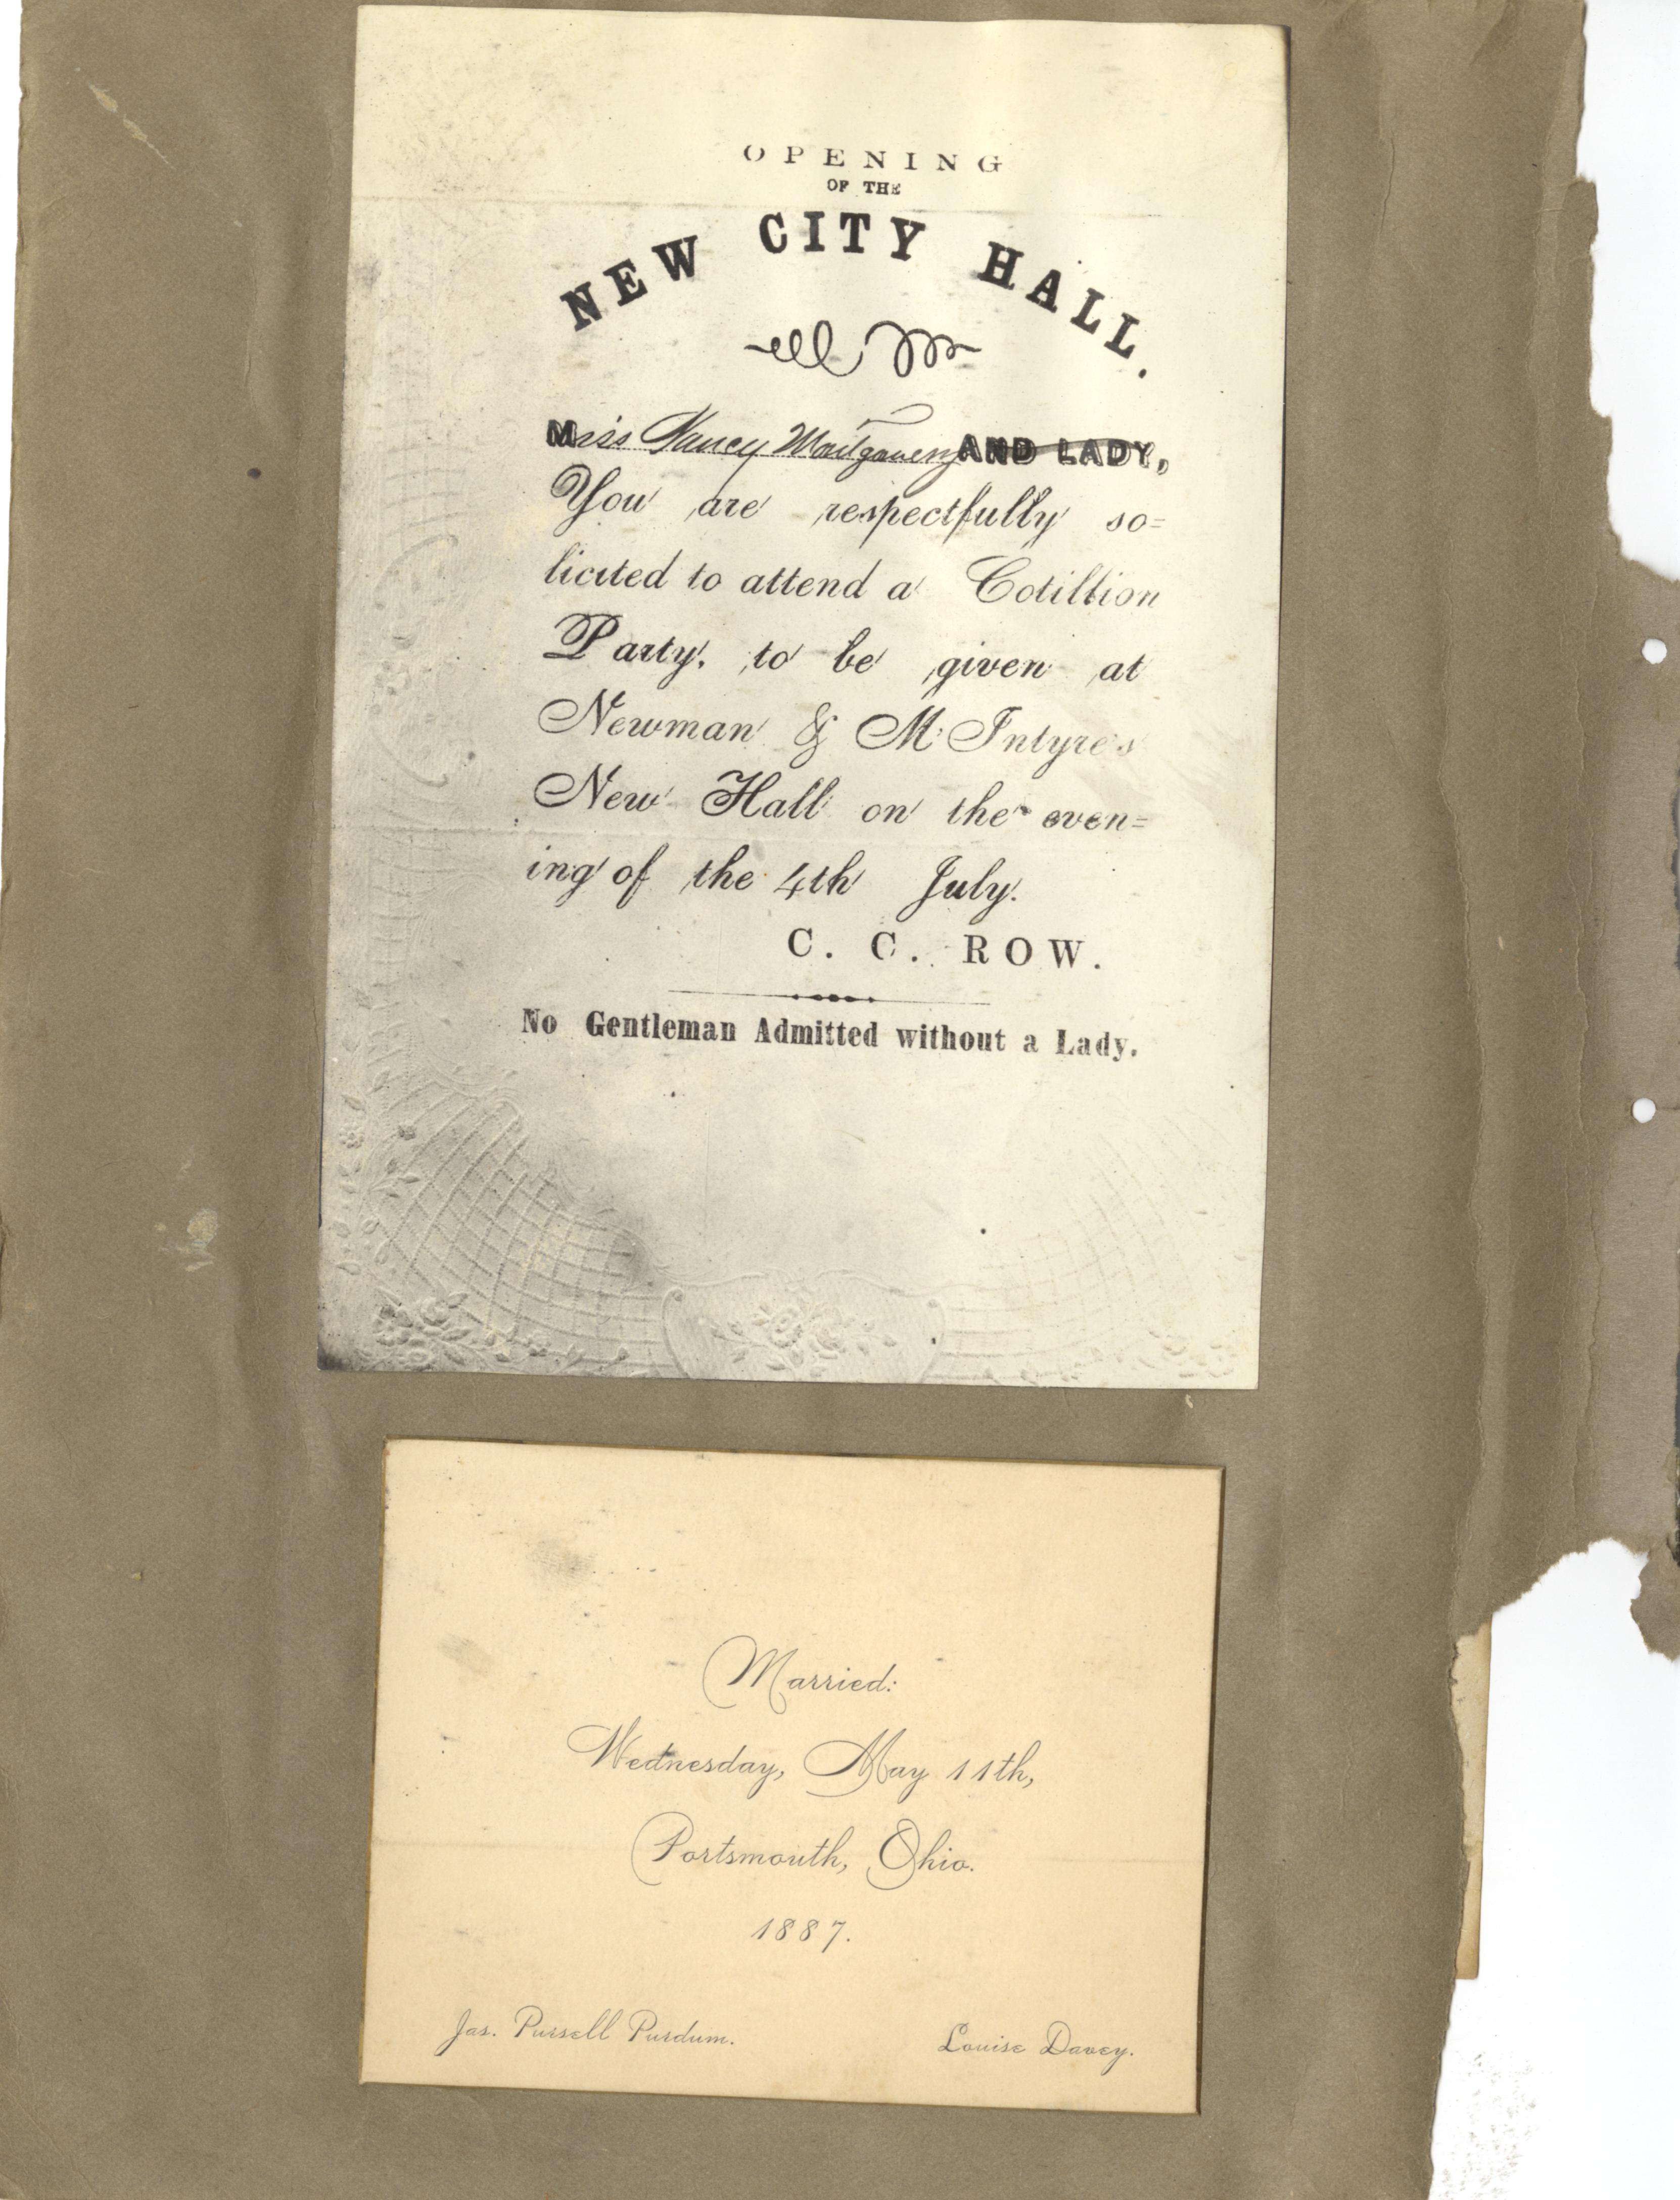 OPENING
OF THE
NEW CITY HALL.
Miss Nancy Montgomery AND LADY,
You are respectfully so=
licited to attend a Cotillion
Party, to be given at
Newman & McIntyre's
New Hall on the even=
ing of the 4th July.
C. C. ROW.
No Gentleman Admitted without a Lady.
Married:
Wednesday, May 11th,
Portsmouth, Ohio.
1887.
Jas. Pursell Purdum.
Louise Davey.